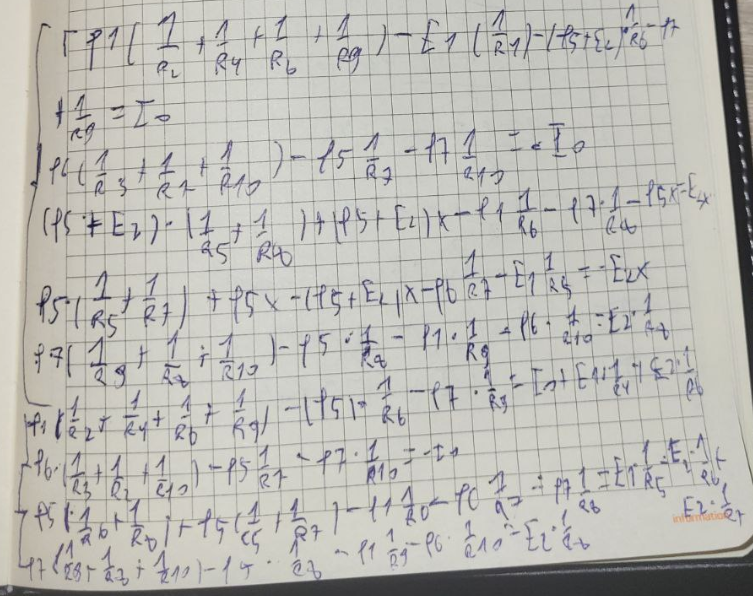 φ1(1/R2 + 1/R4 + 1/R6 + 1/R9) - E1(1/R4) - (φ5+E2)·1/R6 - φ7
+ 1/R9 = I0
φ6(1/R3 + 1/R7 + 1/R10) - φ5 1/R7 - φ7 1/R10 = -I0
(φ5 + E2)·(1/R5 + 1/R8) + (φ5 + E2)x - φ1 1/R6 - φ7·1/R8 - φ5x - E2x
φ5·(1/R5 + 1/R7) + φ5x - (φ5+E2)x - φ6 1/R7 - E1 1/R5 = -E2x
φ7(1/R9 + 1/R8 + 1/R10) - φ5·1/R8 - φ1·1/R9 - φ6·1/R10 = E2·1/R8
φ1(1/R2 + 1/R4 + 1/R6 + 1/R9) - (φ5)·1/R6 - φ7·1/R9 = I0 + E1·1/R4 + E2·1/R6
φ6·(1/R3 + 1/R7 + 1/R10) - φ5 1/R7 - φ7·1/R10 = -I0
φ5(1/R6 + 1/R8) + φ5(1/R5 + 1/R7) - φ1 1/R6 - φ6 1/R7 - φ7 1/R8 = E1·1/R5 - E2·1/R6 -
E2·1/R8
φ7(1/R9 + 1/R8 + 1/R10) - φ5·1/R8 - φ1 1/R9 - φ6·1/R10 = E2·1/R8